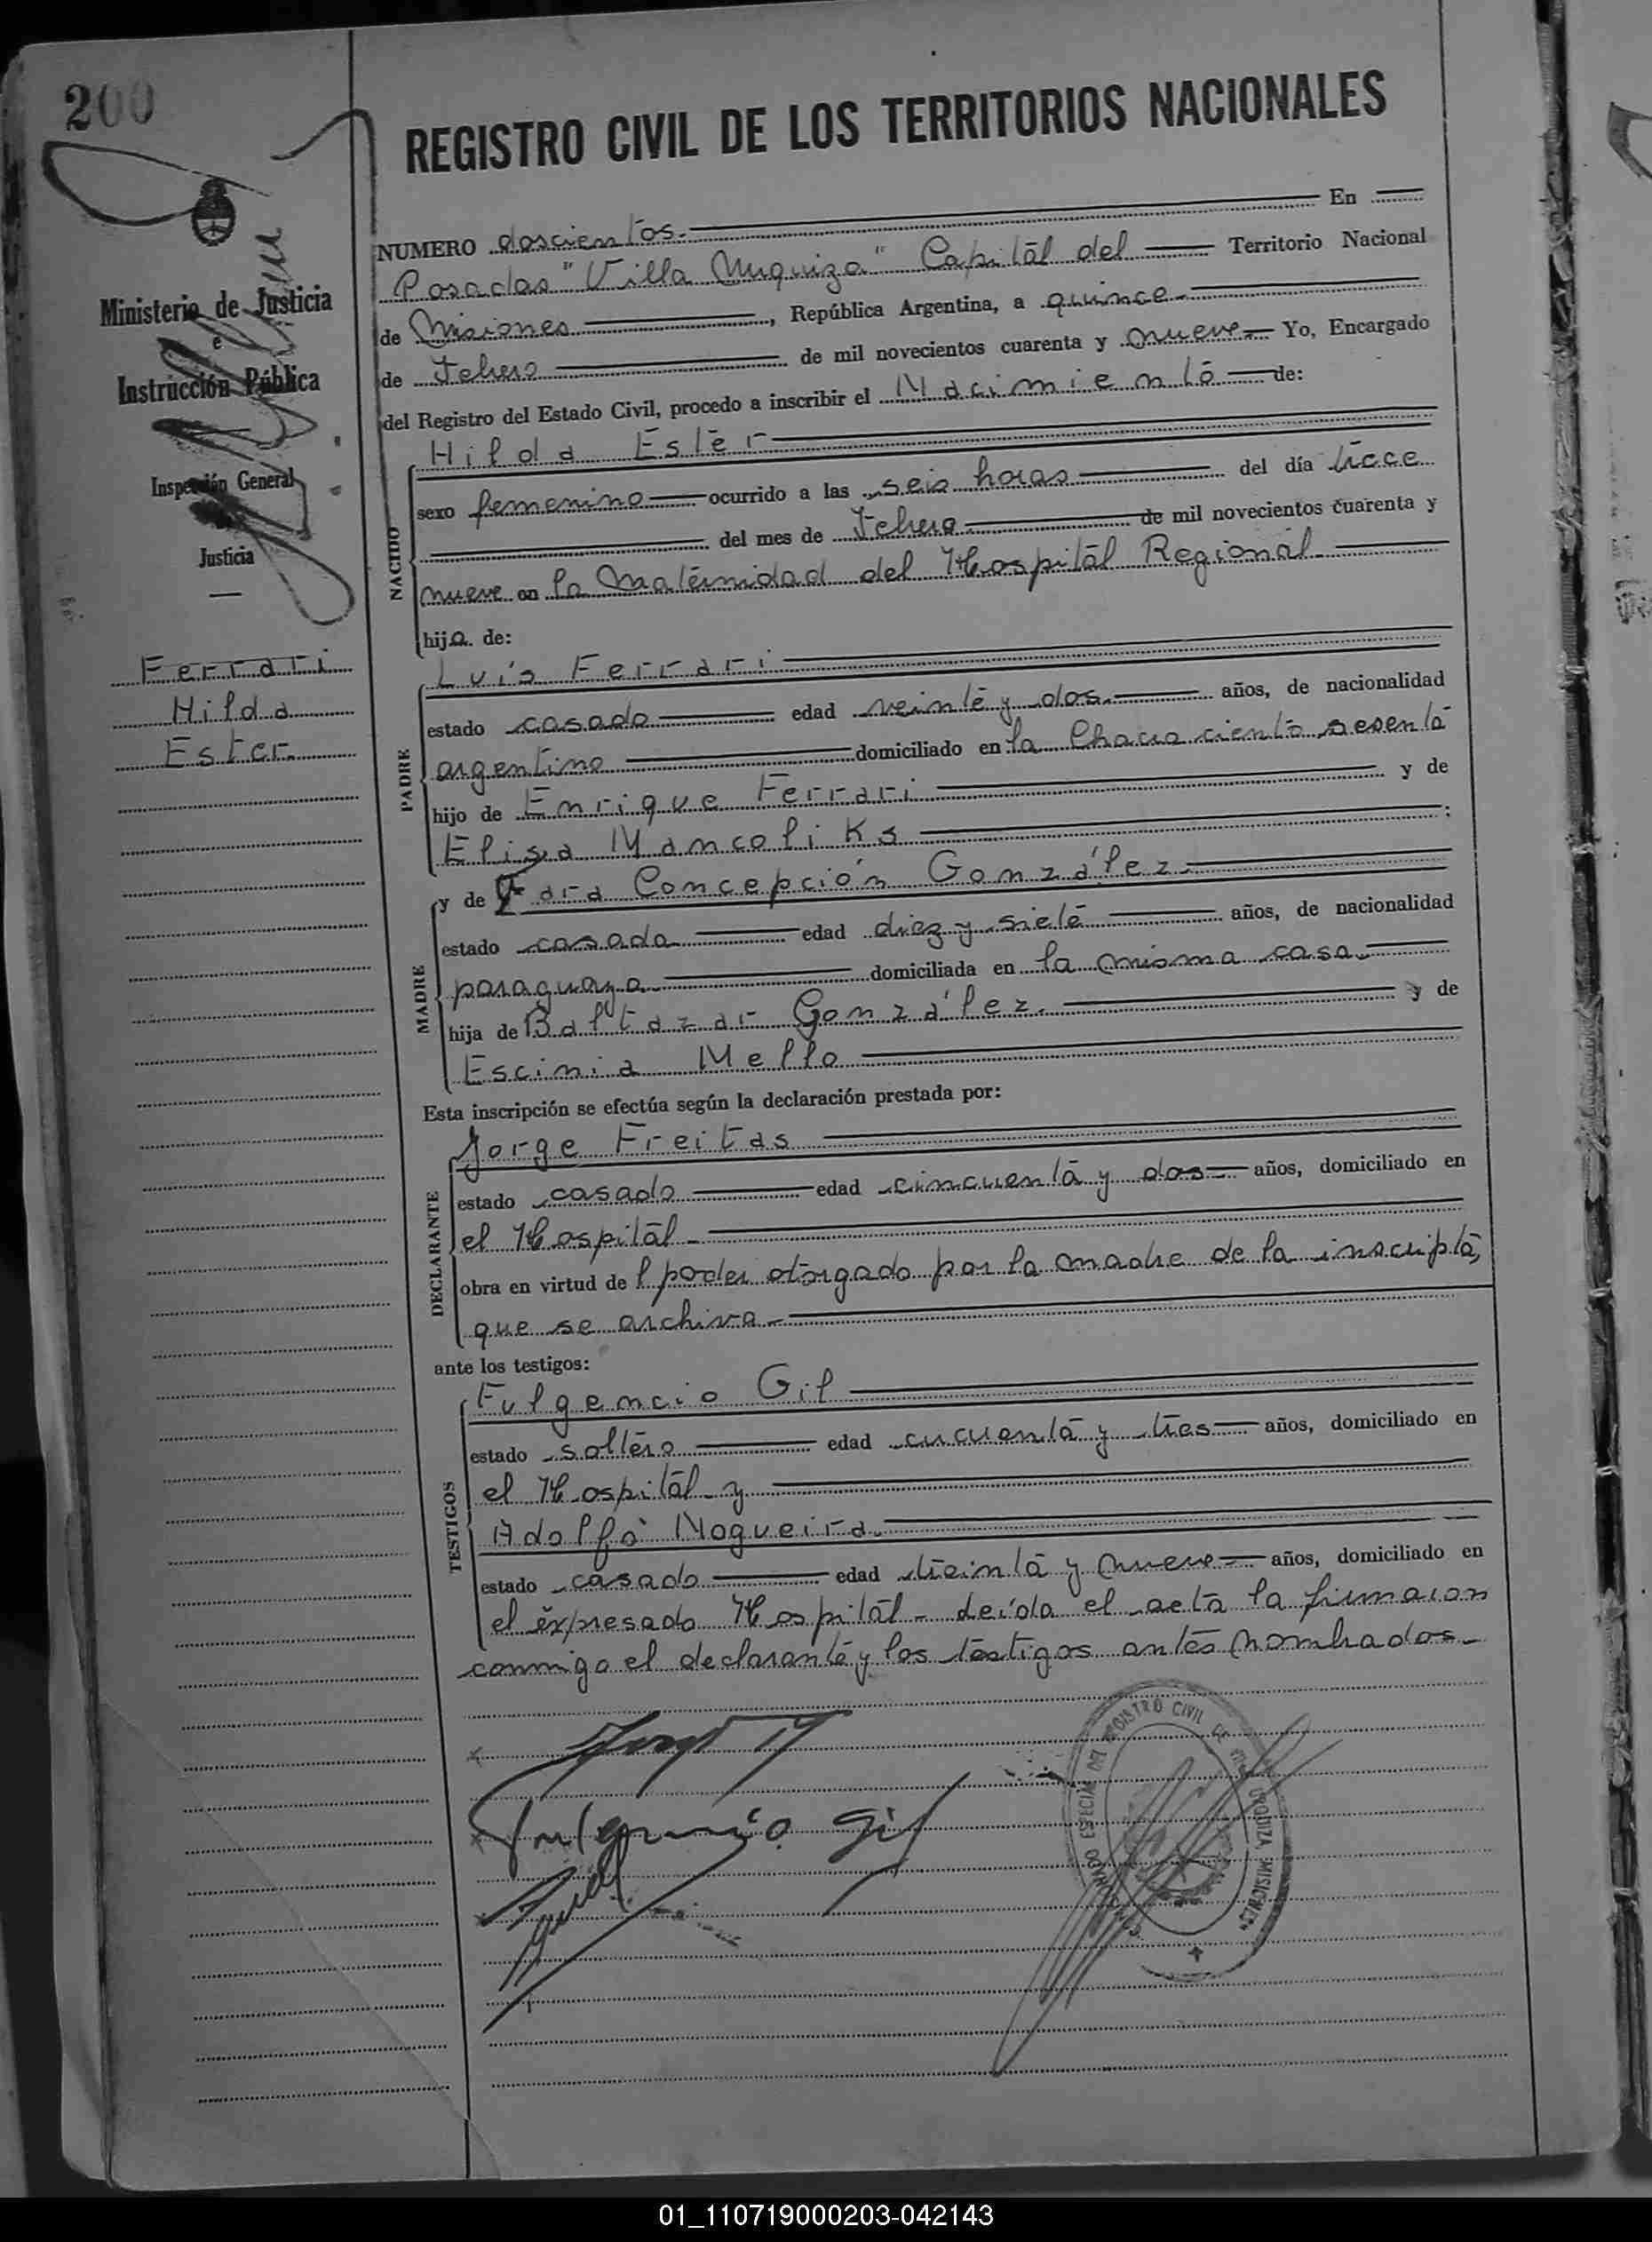 200
REGISTRO CIVIL DE LOS TERRITORIOS NACIONALES
Ministerio de Justicia
e
Instrucción Pública
Inspección General
de
Justicia
Ferrari
Hilda
Ester.
NUMERO doscientos. En
Posadas "Villa Urquiza" Capital del Territorio Nacional
de Misiones, República Argentina, a quince
de Febrero de mil novecientos cuarenta y nueve Yo, Encargado
del Registro del Estado Civil, procedo a inscribir el Nacimiento de:
NACIDO
Hilda Ester
sexo femenino ocurrido a las seis horas del día trece
del mes de Febrero de mil novecientos cuarenta y
nueve en la Maternidad del Hospital Regional
hija de:
PADRE
Luis Ferrari
estado casado edad veinte y dos. años, de nacionalidad
argentino domiciliado en la Chacra ciento sesenta
hijo de Enrique Ferrari y de
Elisa Mancoliks ;
MADRE
y de Concepción González.
estado casada edad diez y siete años, de nacionalidad
paraguaya domiciliada en la misma casa.
hija de Baltazar González. y de
Escinia Mello
Esta inscripción se efectúa según la declaración prestada por:
DECLARANTE
Jorge Freitas
estado casado edad cincuenta y dos años, domiciliado en
el Hospital
obra en virtud del poder otorgado por la madre de la inscripta,
que se archiva
ante los testigos:
TESTIGOS
Fulgencio Gil
estado soltero edad cucuenta y tres años, domiciliado en
el Hospital y
Adolfo Nogueira.
estado casado edad treinta y nueve años, domiciliado en
el expresado Hospital leída el acta la firmaron
conmigo el declarante y los testigos antes nombrados
Fulgencio Gil
REGISTRO CIVIL DE VILLA URQUIZA MISIONES
01_110719000203-042143